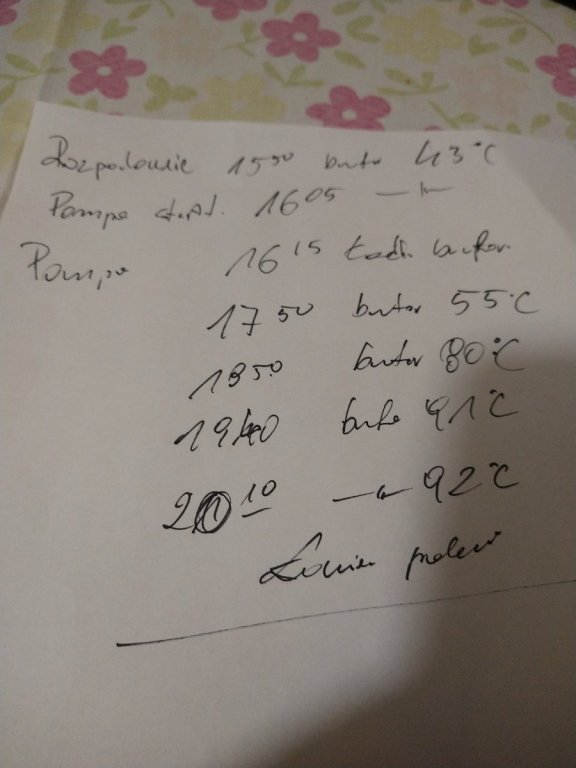 Rozpalanie 15⁵⁰ bufor 43°C
Pompa start. 16⁰⁵ —〃—
Pompa 16¹⁵ Ład. bufor
17⁵⁰ bufor 55°C
18⁵⁰ bufor 80°C
19⁴⁰ bufo 91°C
20¹⁰ —〃— 92°C
Koniec palenia